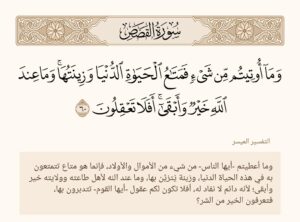 سُورَةُ القَصَصِ
وَمَآ أُوتِيتُم مِّن شَىْءٍ فَمَتَٰعُ ٱلْحَيَوٰةِ ٱلدُّنْيَا وَزِينَتُهَا ۚ وَمَا عِندَ
ٱللَّهِ خَيْرٌ وَأَبْقَىٰٓ ۚ أَفَلَا تَعْقِلُونَ ٦٠
التفسير الميسر
وما أعطيتم -أيها الناس- من شيء من الأموال والأولاد، فإنما هو متاع تتمتعون
به في هذه الحياة الدنيا، وزينة يُتزيَّن بها، وما عند الله لأهل طاعته وولايته خير
وأبقى؛ لأنه دائم لا نفاد له، أفلا تكون لكم عقول -أيها القوم- تتدبرون بها،
فتعرفون الخير من الشر؟